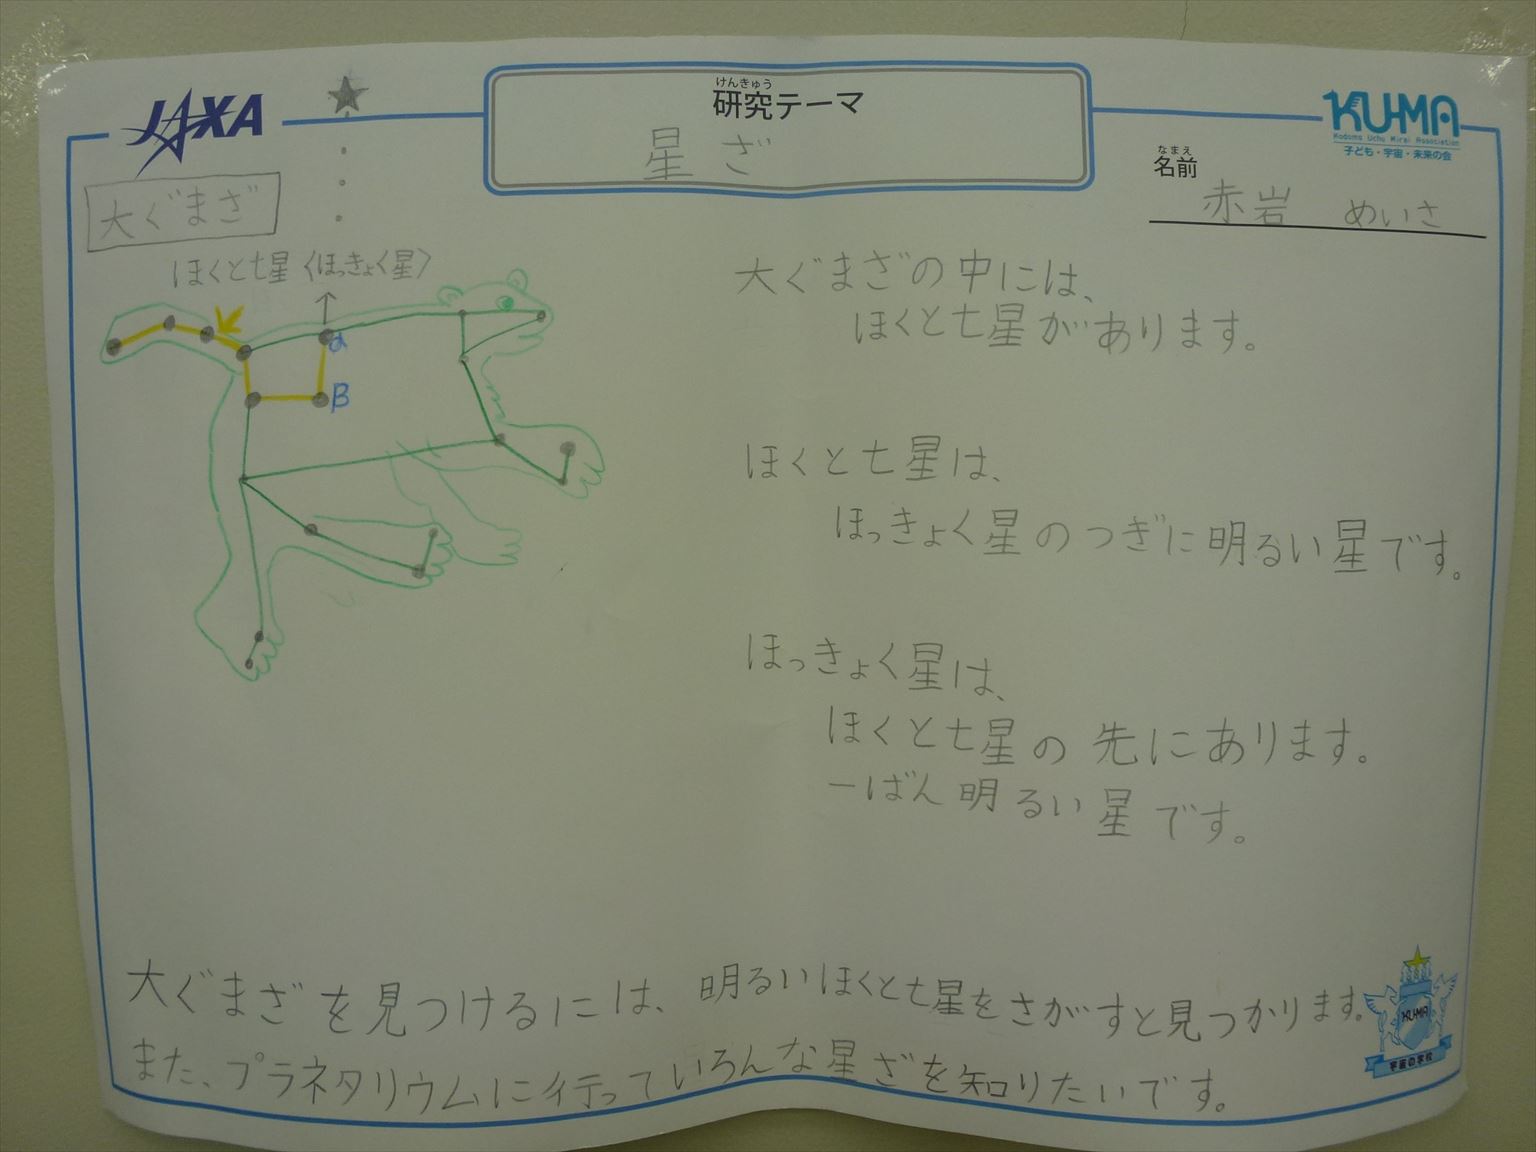 JAXA
けんきゅう
研究テーマ
星ざ
KU-MA
Kodomo Uchu Mirai Association
子ども・宇宙・未来の会
なまえ
名前
赤岩 めいさ
大ぐまざ
ほくと七星〈ほっきょく星〉
α
β
大ぐまざの中には、
ほくと七星があります。
ほくと七星は、
ほっきょく星のつぎに明るい星です。
ほっきょく星は、
ほくと七星の先にあります。
一ばん明るい星です。
大ぐまざを見つけるには、明るいほくと七星をさがすと見つかります。
また、プラネタリウムに行っていろんな星ざを知りたいです。
KU-MA
宇宙の学校